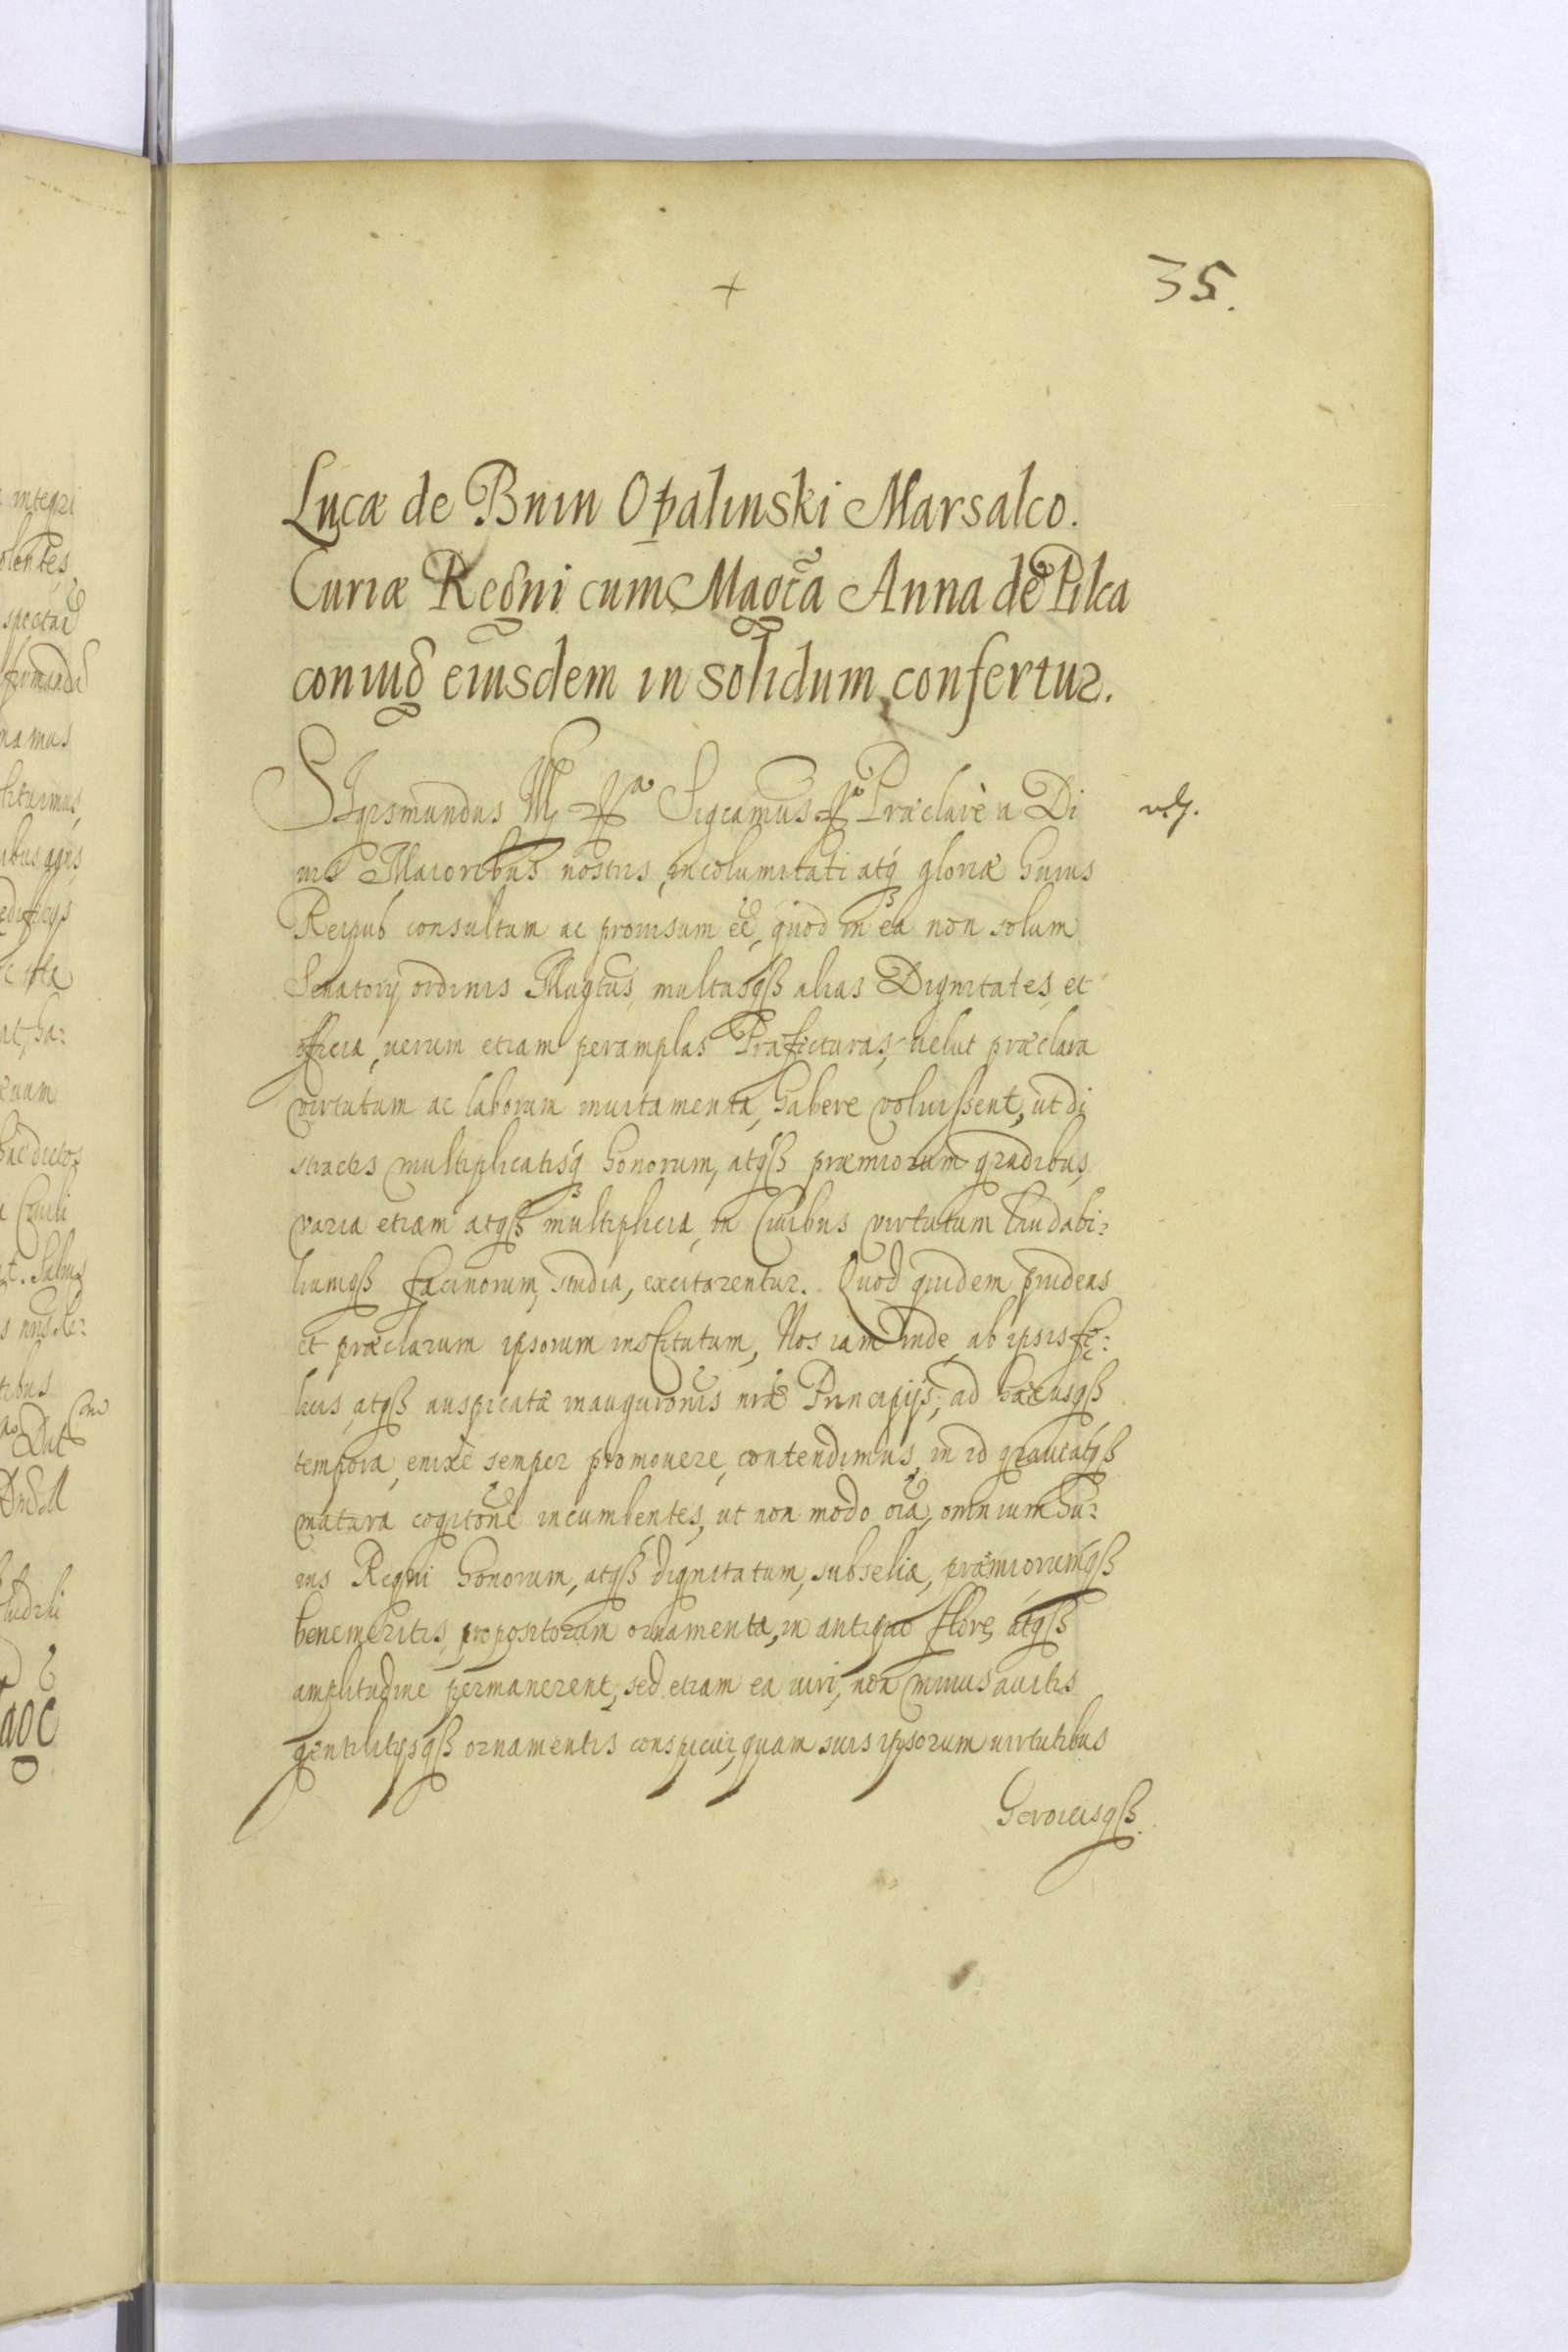 +
35.
Lucæ de Bnin Opalinski Marsalco.
Curiæ Regni cum Magca Anna de Pilca
coniug eiusdem in solidum confertur.
SIgismundus III Sigcamus Præclarè a Di
uis Maioribus nostris, incolumitati atq gloriæ huius
Reipub consultum ac prouisum eē, quod in ea non solum
Senatorij ordinis Mugtus, multasqß alias Dignitates, et
officia, uerum etiam peramplas Præfecturas, uelut præclara
virtutum ac laborum inuitamenta, habere voluissent, ut di
stractis multiplicatisq honorum, atqß præmiorum gradibus,
varia etiam atqß multiplicia, in Ciuibus virtutum laudabi:
liumqß facinorum, studia, excitarentur. Quod quidem prudens
et præclarum ipsorum institutum, Nos iam inde, ab ipsis fę:
licis, atqß auspicatæ inauguronis nræ Principijs, ad hæcusqß
tempora, enixè semper promouere, contendimus, in id grauiatqß
matura cogitone incumbentes, ut non modo oīa, omnium hu:
ius Regni honorum, atqß dignitatum, subselia, præmiorumqß
benemeritis, propositorum ornamenta, in antiquo flore, atqß
amplitudine permanerent, sed etiam ea uiri, non minus auitis
gentilitijsqß ornamentis conspicui, quam suis ipsorum uirtutibus
Heroicisqß.